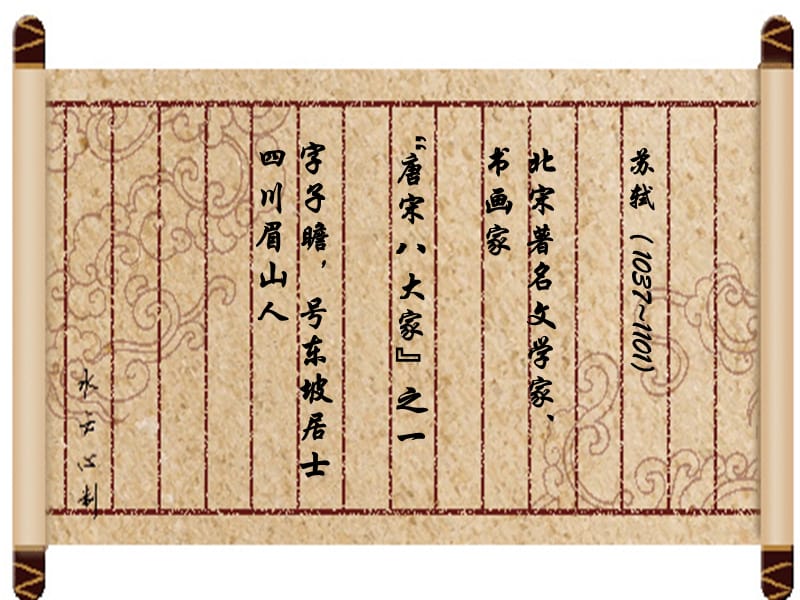 苏轼（1037~1101)
北宋著名文学家、
书画家
”唐宋八大家』之一
字子瞻，号东坡居士
四川眉山人